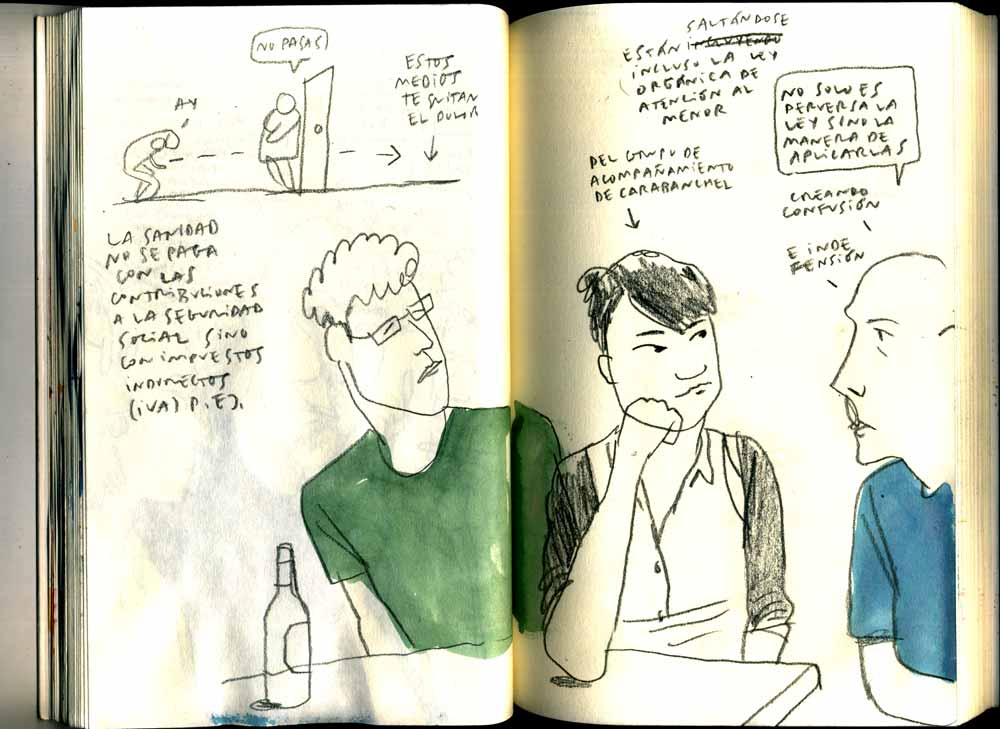 NO PASAS
AY
ESTOS
MEDIOS
TE QUITAN
EL DOLOR
LA SANIDAD
NO SE PAGA
CON LAS
CONTRIBUCIONES
A LA SEGURIDAD
SOCIAL SINO
CON IMPUESTOS
INDIRECTOS
(IVA) P.EJ.
SALTÁNDOSE
ESTÁN INCLUYENDO
INCLUSO LA LEY
ORGÁNICA DE
ATENCIÓN AL
MENOR
DEL GRUPO DE
ACOMPAÑAMIENTO
DE CARABANCHEL
NO SOLO ES
PERVERSA LA
LEY SINO LA
MANERA DE
APLICARLAS
CREANDO
CONFUSIÓN
E INDE
FENSIÓN